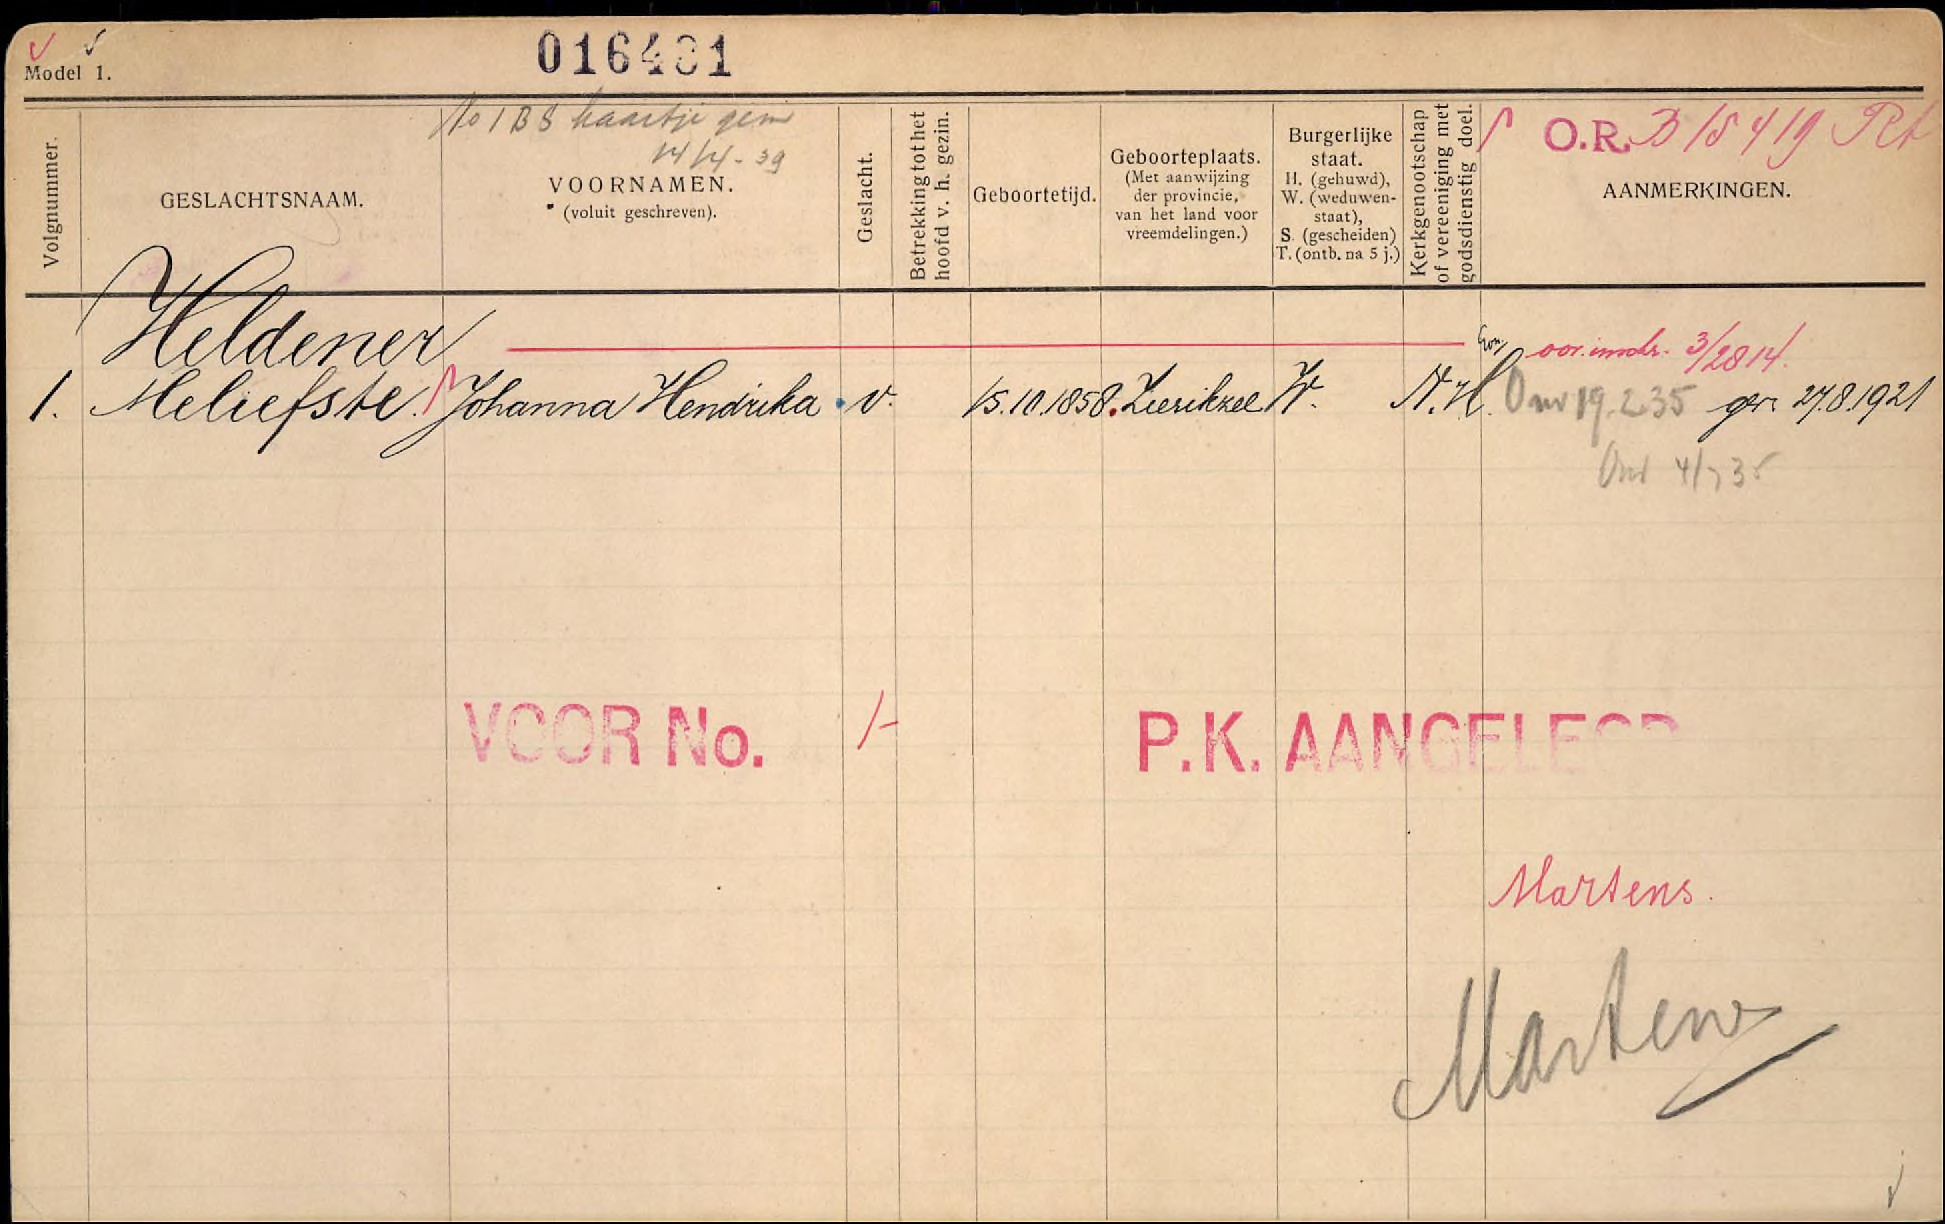 Model 1.
016431
No 1 BS kaartje gem
14/4-39
O.R. B 15419
Volgnummer.
GESLACHTSNAAM.
VOORNAMEN.
(voluit geschreven).
Geslacht.
Betrekking tot het
hoofd v. h. gezin.
Geboortetijd.
Geboorteplaats.
(Met aanwijzing
der provincie,
van het land voor
vreemdelingen.)
Burgerlijke
staat.
H. (gehuwd),
W. (weduwen-
staat),
S. (gescheiden)
T. (ontb. na 5 j.)
Kerkgenootschap
of vereeniging met
godsdienstig doel.
AANMERKINGEN.
Heldener
oor. inschr. 3/2814.
1. Meliefste. Johanna Hendrika v. 15.10.1858. Zierikzee W. N.H. Onv 19.2.35 ger. 27.8.1921
Onv 4/7 35
VOOR No. 1 P.K. AANGELEGD
Martens.
Martens